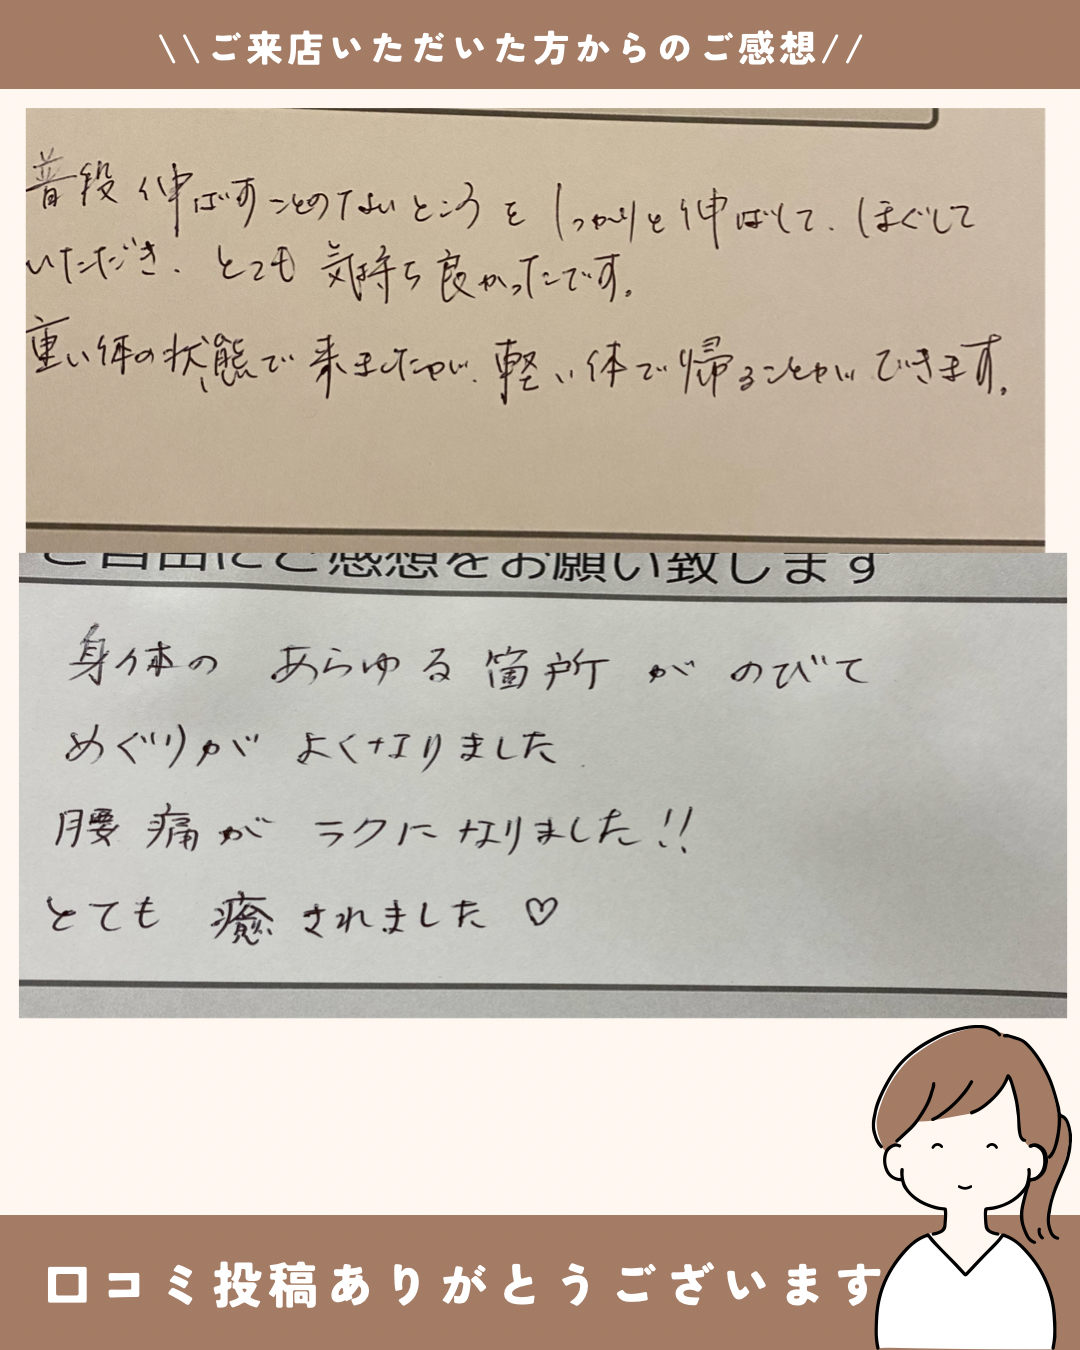 \\ご来店いただいた方からのご感想//
普段伸ばすことのないところをしっかりと伸ばして、ほぐして
いただき、とても気持ち良かったです。
重い体の状態で来ましたが、軽い体で帰ることができます。
ご自由にご感想をお願い致します
身体のあらゆる箇所がのびて
めぐりがよくなりました
腰痛がラクになりました!!
とても癒されました♡
口コミ投稿ありがとうございます